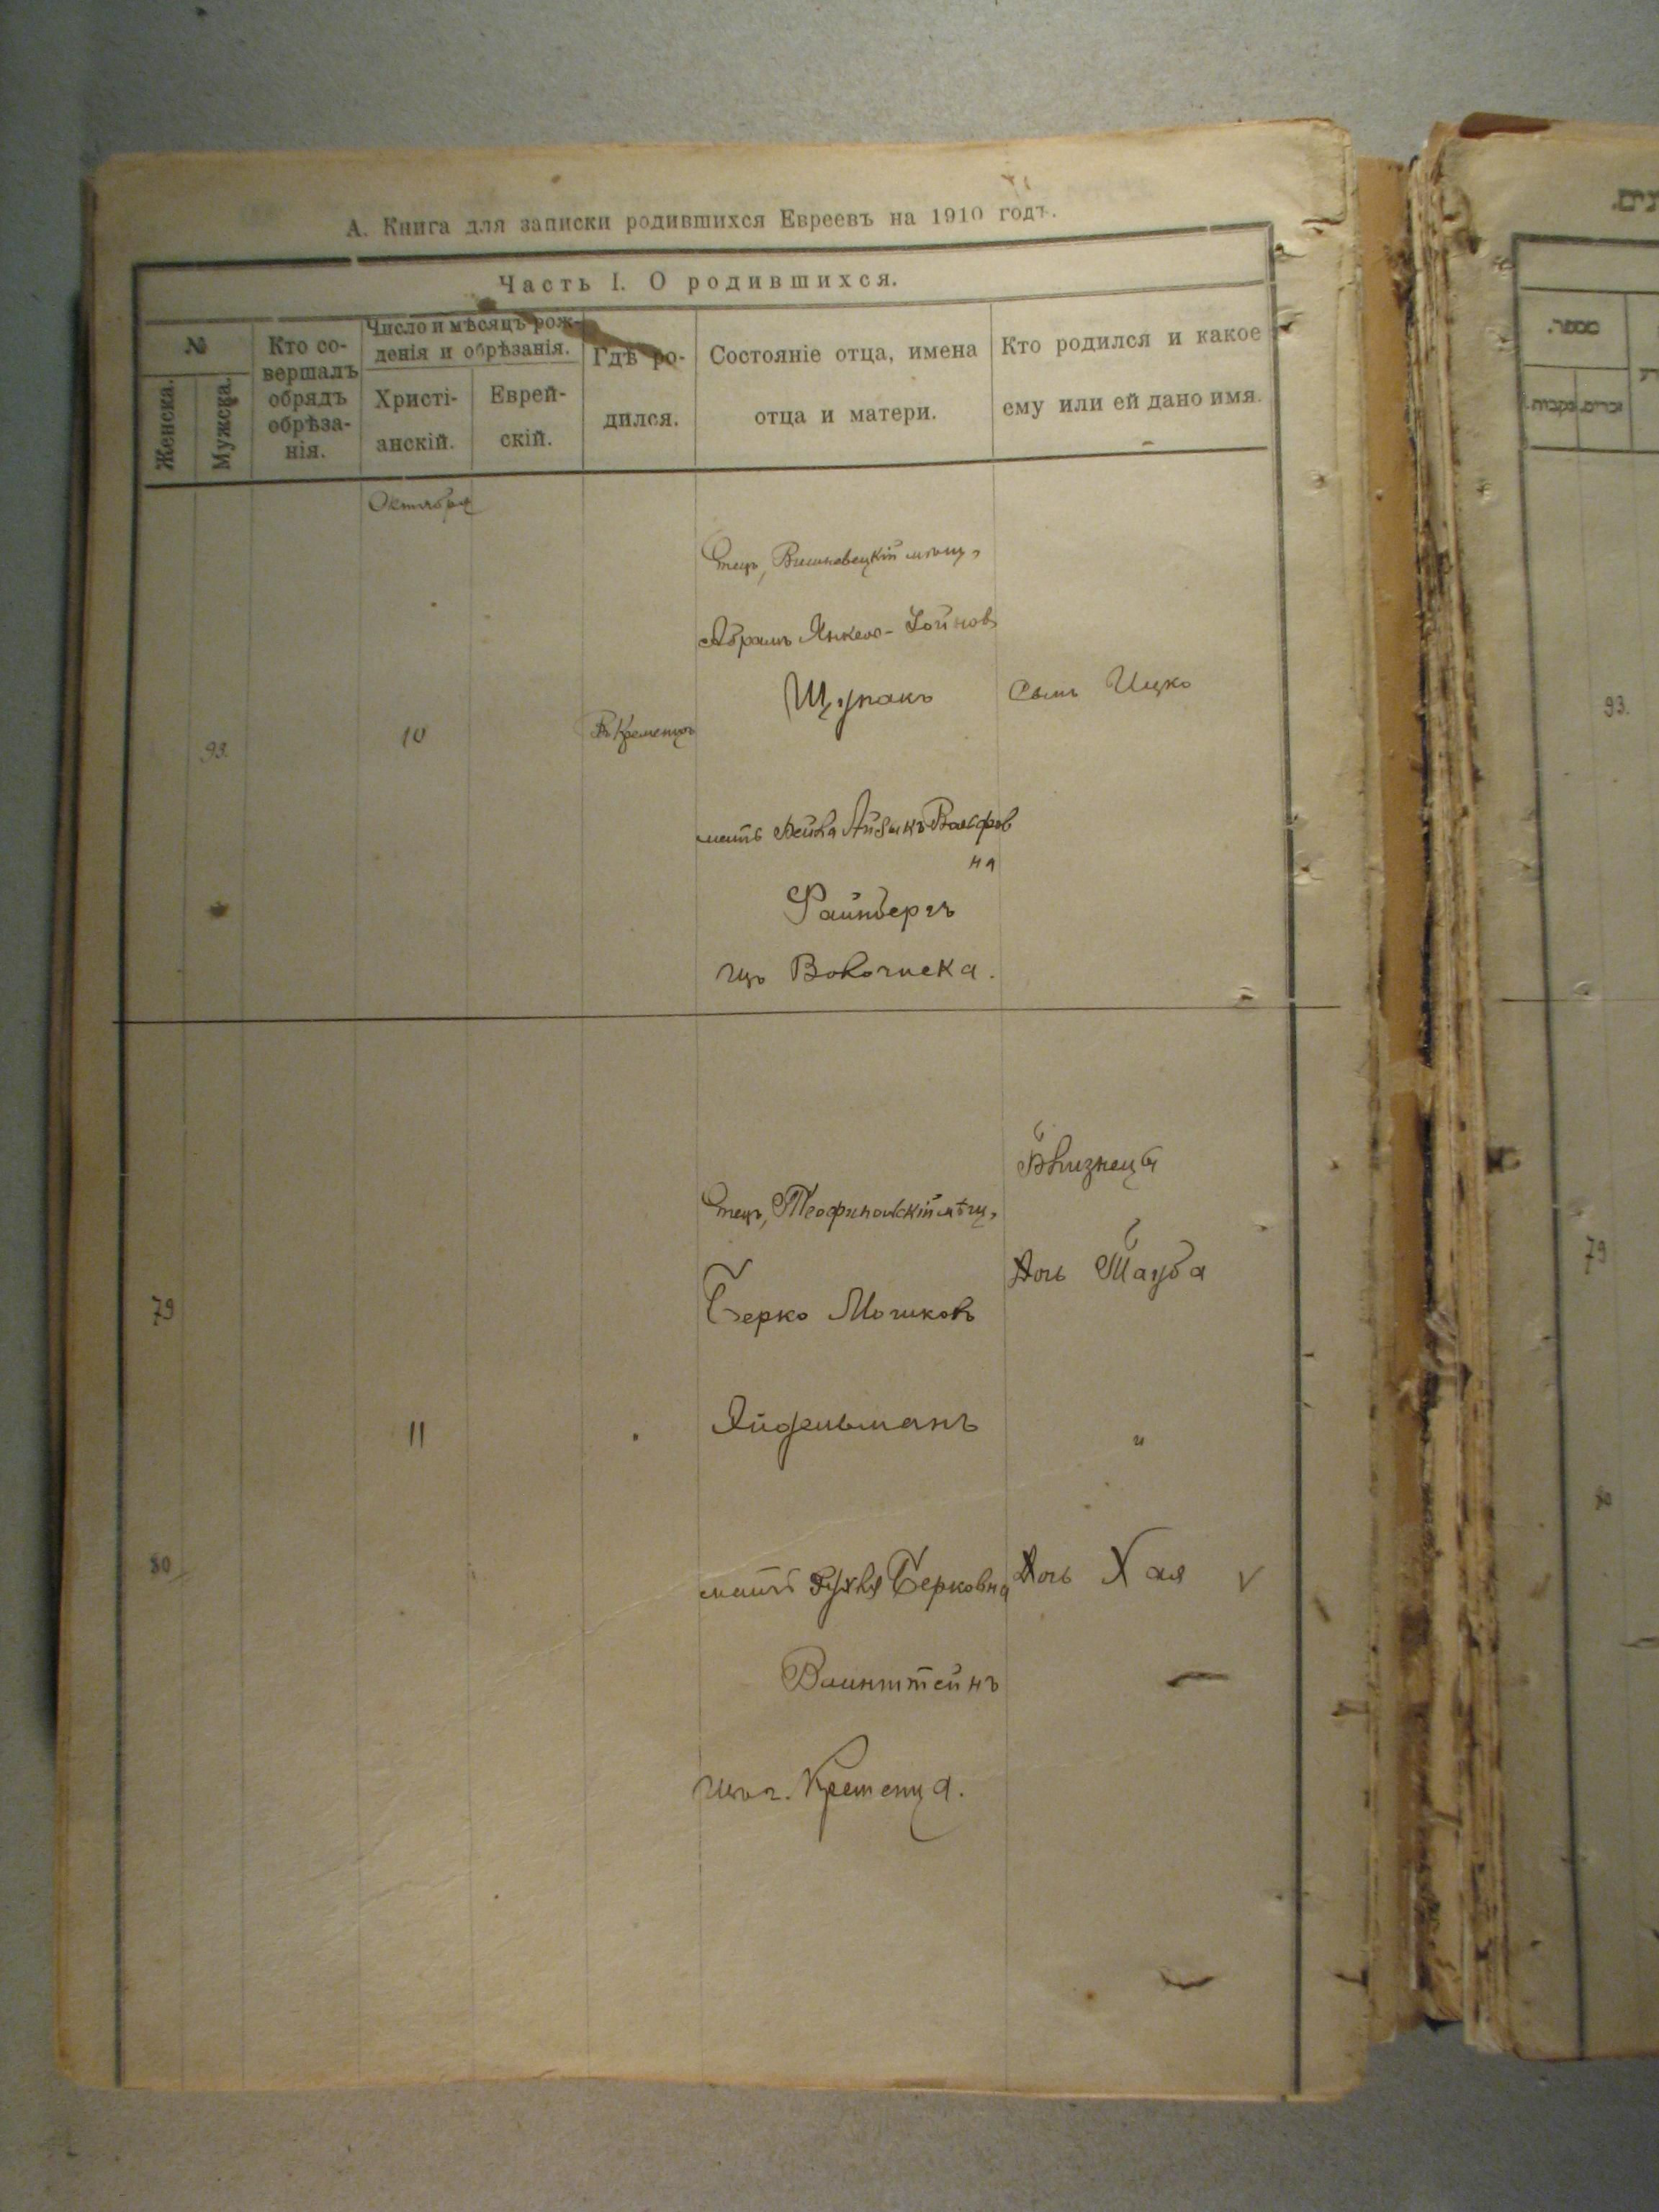 А. Книга для записки родившихся Евреевъ на 1910 годъ.
Часть I. О родившихся.
№
Женска.
Мужска.
Кто со-
вершалъ
обрядъ
обрѣза-
нія.
Число и мѣсяцъ рож-
денія и обрѣзанія.
Христі-
анскій.
Еврей-
скій.
Гдѣ ро-
дился.
Состояніе отца, имена
отца и матери.
Кто родился и какое
ему или ей дано имя.
Октября
93.
10
Въ Кременцѣ
Отецъ, Вишневецкій мѣщ,
Абрамъ Янкель-Хойнов
Щупакъ
мать Бейла Айзыкъ-Вольфов
на
Файнбергъ
изъ Волочиска.
Сынъ Ицко
79
80
11
Отецъ, Теофипольскій мѣщ,
Берко Мошковъ
Айдельманъ
мать Рухля Берковна
Ваинштейнъ
изъ г. Кременца.
Близнецы
Дочь Тауба
"
Дочь Хая
מספר.
זכרים.
נקבות.
93.
79
80